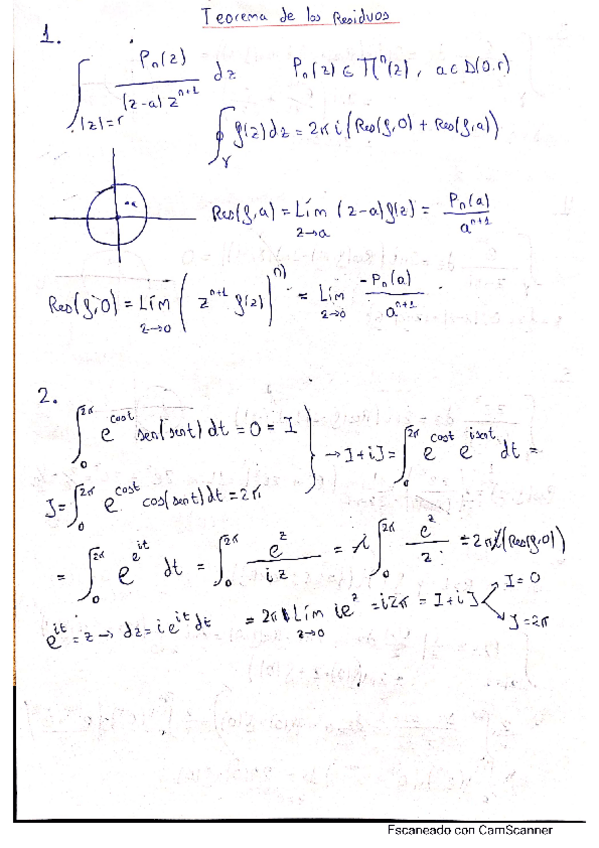 Teorema de los Residuos
1.
∫_{|z|=r} P_n(z) / ((z-a) z^{n+1}) dz    P_n(z) ∈ Π^n(z), a ∈ D(0,r)
∮_γ f(z)dz = 2πi (Res(f,0) + Res(f,a))
a
Res(f,a) = Lím_{z→a} (z-a)f(z) = P_n(a) / a^{n+1}
Res(f,0) = Lím_{z→0} (z^{n+1} f(z))^{n)} = Lím_{z→0} -P_n(a) / a^{n+1}
2.
∫_0^{2π} e^{cost} sen(sent) dt = 0 = I
J = ∫_0^{2π} e^{cost} cos(sent) dt = 2π } → I + iJ = ∫_0^{2π} e^{cost} e^{isent} dt =
= ∫_0^{2π} e^{e^{it}} dt = ∫_0^{2π} e^z / iz = i ∫_0^{2π} e^z / z = 2πi (Res(f,0))
e^{it} = z → dz = i e^{it} dt    = 2π Lím_{z→0} ie^z = i2π = I + iJ → I = 0
→ J = 2π
Escaneado con CamScanner